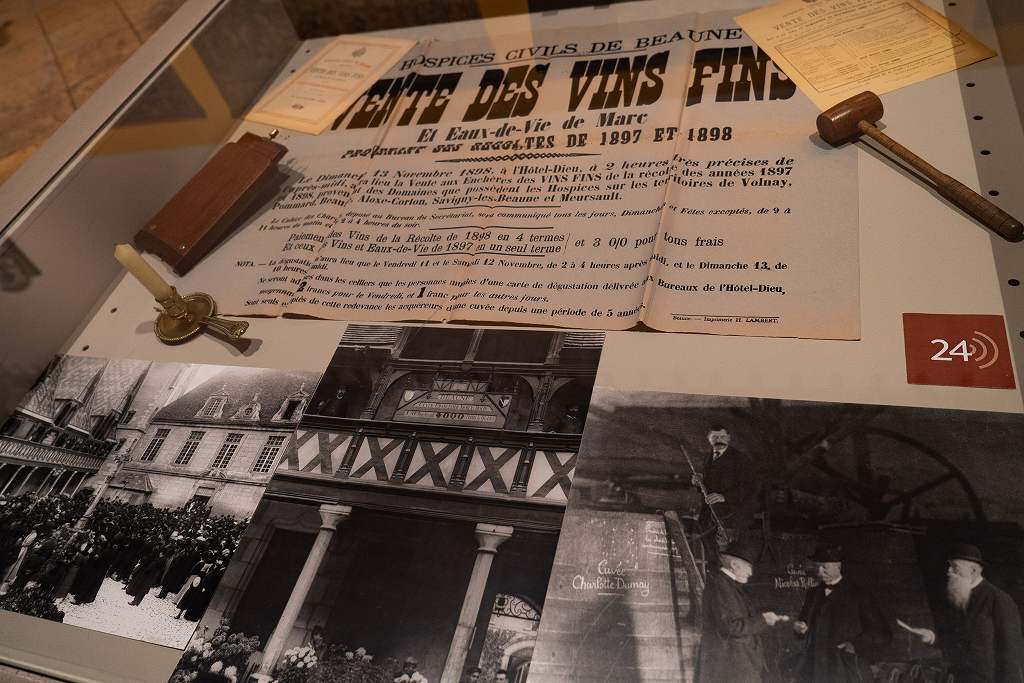 HOSPICES CIVILS DE BEAUNE
VENTE DES VINS FINS
Et Eaux-de-Vie de Marc
PROVENANT DES RÉCOLTES DE 1897 ET 1898
Le Dimanche 13 Novembre 1898, à l'Hôtel-Dieu, à 2 heures très précises de
l'après-midi, aura lieu la Vente aux Enchères des VINS FINS de la récolte des années 1897
et 1898, provenant des Domaines que possèdent les Hospices sur les territoires de Volnay,
Pommard, Beaune, Aloxe-Corton, Savigny-les-Beaune et Meursault.
Le Cahier des Charges déposé au Bureau du Secrétariat, sera communiqué tous les jours, Dimanches et Fêtes exceptés, de 9 à
11 heures du matin et de 2 à 4 heures du soir.
Paiement des Vins de la Récolte de 1898 en 4 termes
Et ceux des Vins et Eaux-de-Vie de 1897 en un seul terme
et 3 0/0 pour tous frais
NOTA. — La dégustation n'aura lieu que le Vendredi 11 et le Samedi 12 Novembre, de 2 à 4 heures après midi, et le Dimanche 13, de
10 heures à midi.
Ne seront admises dans les celliers que les personnes munies d'une carte de dégustation délivrée aux Bureaux de l'Hôtel-Dieu,
moyennant 2 francs pour le Vendredi, et 1 franc pour les autres jours.
Sont seuls exceptés de cette redevance les acquéreurs d'une cuvée depuis une période de 5 années.
Beaune. — Imprimerie H. LAMBERT.
VENTE DES VINS FINS
VENTE DES VINS
24
BEAUNE
Cuvée
Charlotte Dumay
Cuvée
Nicolas Rollin